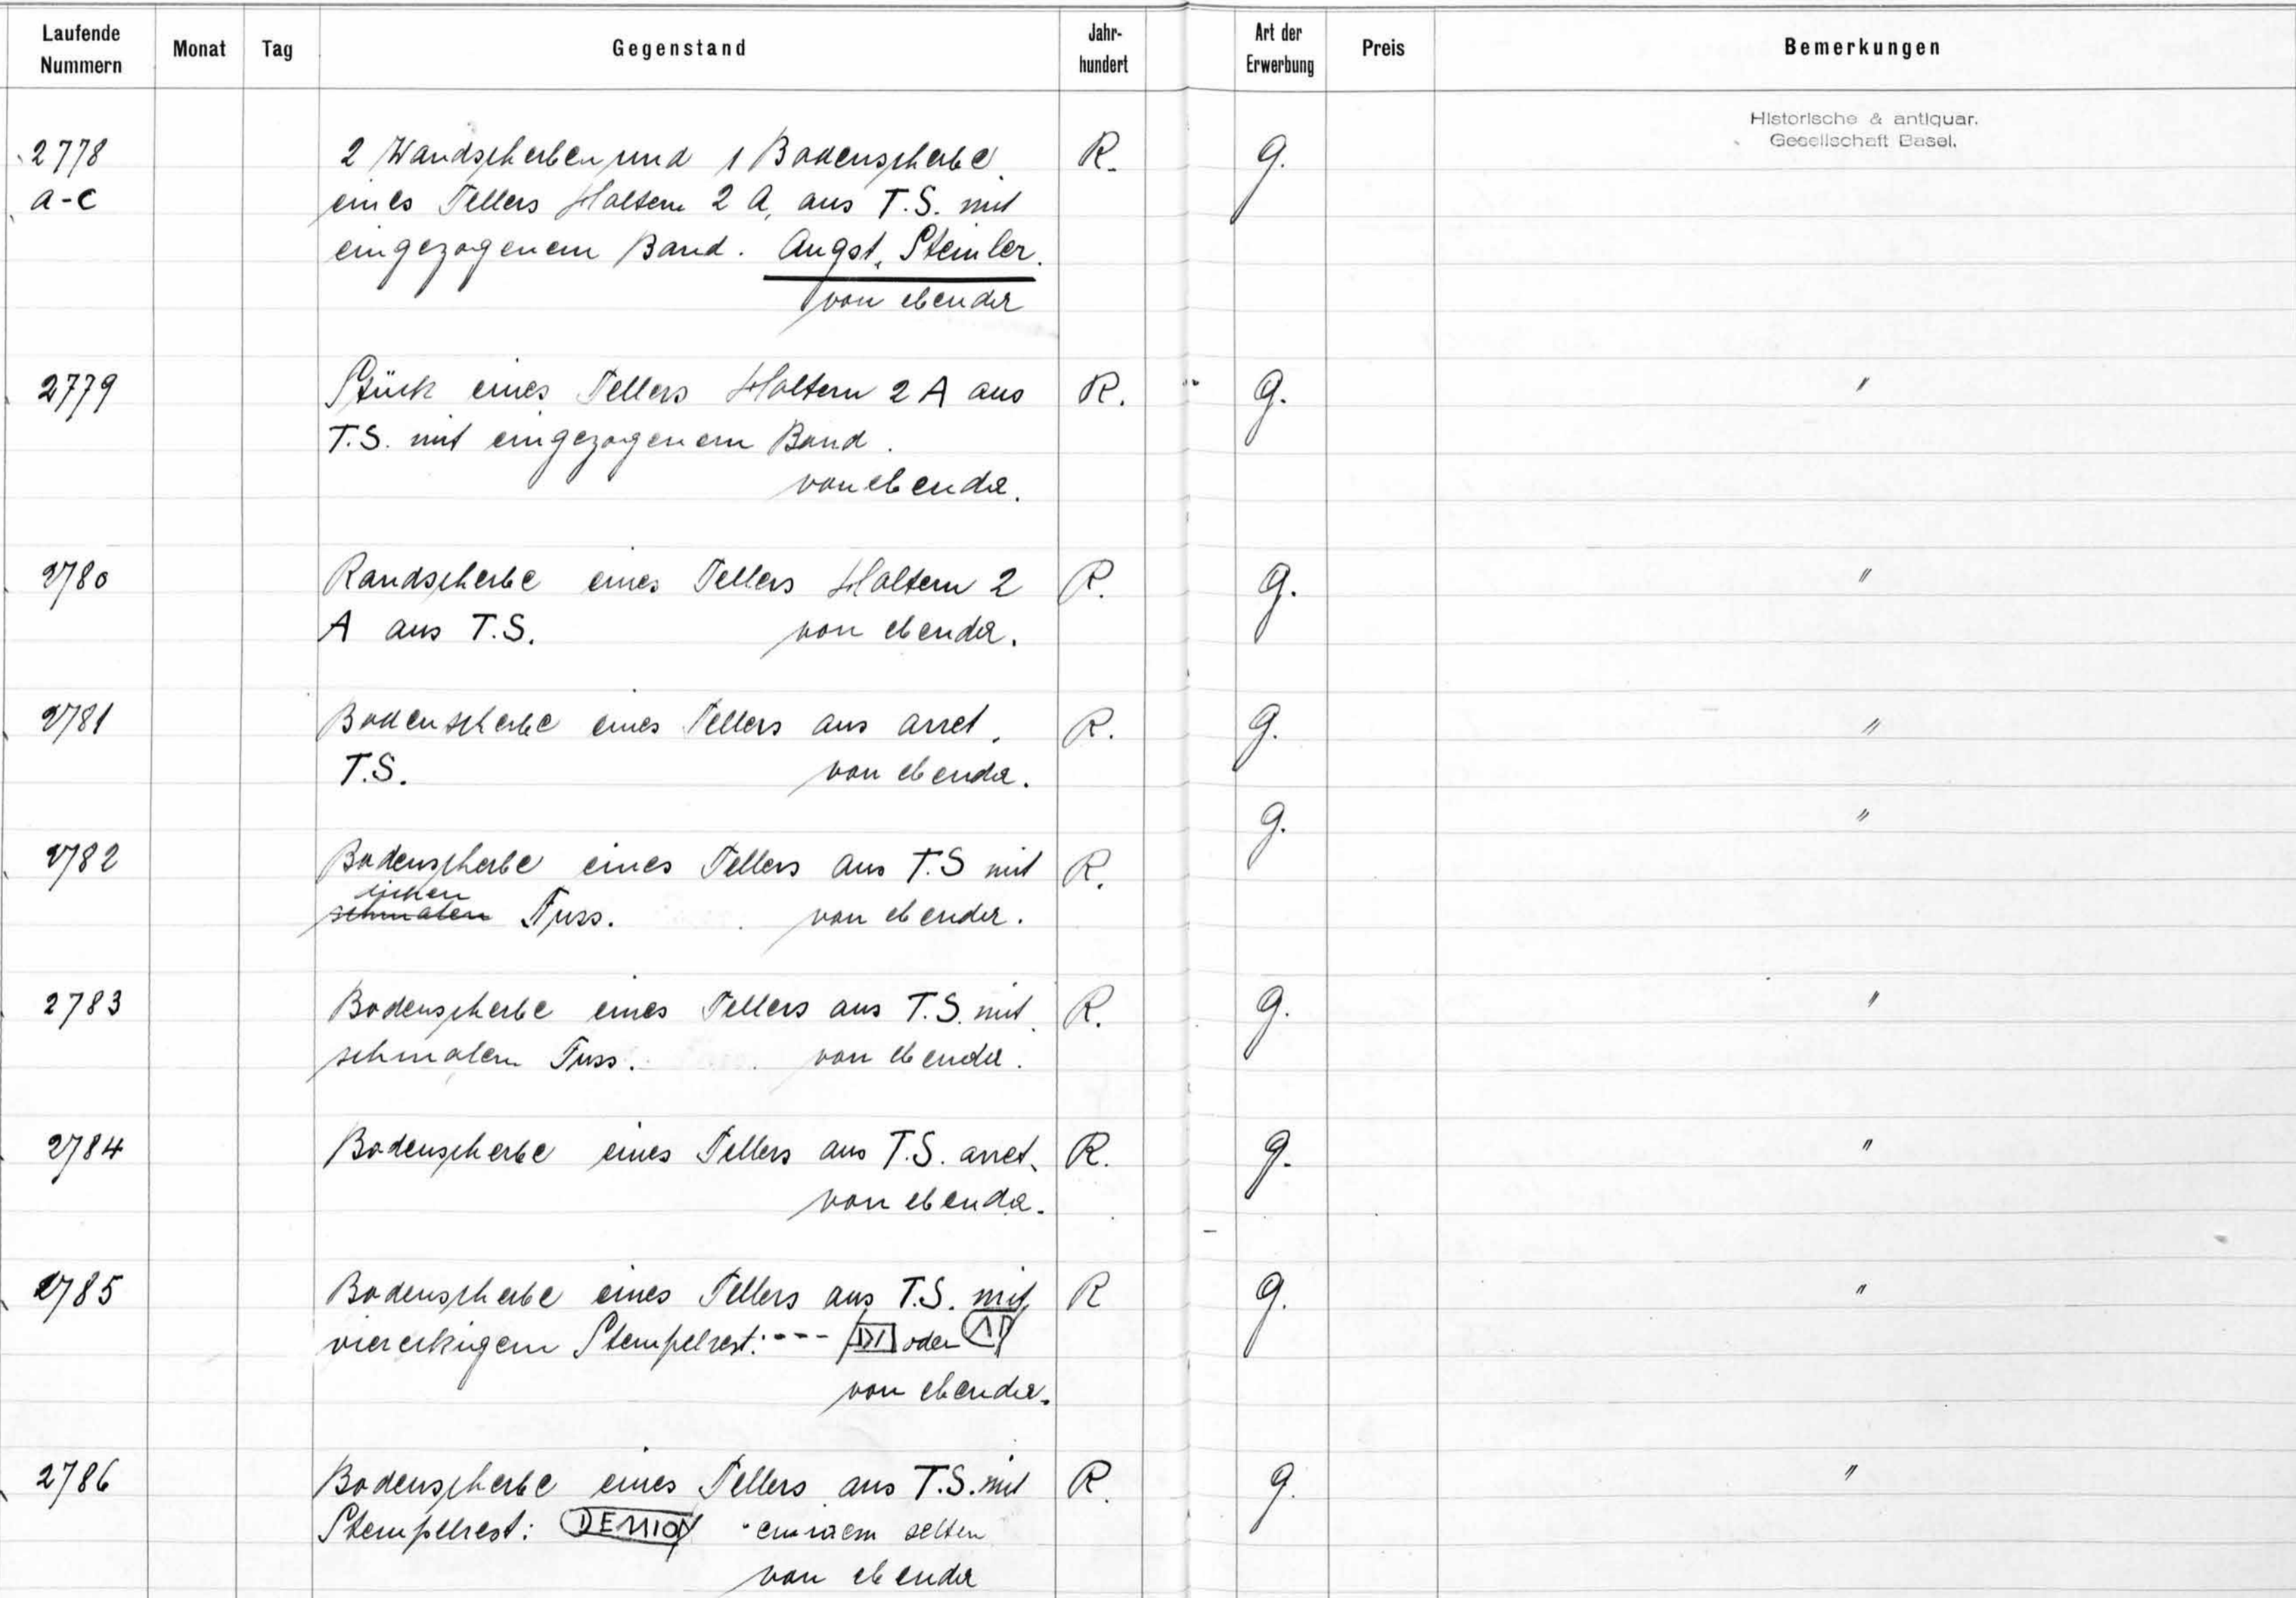 Laufende Nummern Monat Tag Gegenstand Jahr-hundert Art der Erwerbung Preis Bemerkungen
Historische & antiquar.
Gesellschaft Basel.
2778 2 Wandscherben und 1 Bodenscherbe R. G.
a-c eines Tellers Haltern 2 A, aus T.S. mit
eingezogenem Band. Augst, Steinler.
von ebenda
2779 Stück eines Tellers Haltern 2 A aus R. G. "
T.S. mit eingezogenem Band.
von ebenda.
2780 Randscherbe eines Tellers Haltern 2 R. G. "
A aus T.S. von ebenda.
2781 Bodenscherbe eines Tellers aus arret. R. G. "
T.S. von ebenda.
G. "
2782 Bodenscherbe eines Tellers aus T.S mit R.
schmalen Fuss. von ebenda.
2783 Bodenscherbe eines Tellers aus T.S. mit R. G. "
schmalem Fuss. von ebenda.
2784 Bodenscherbe eines Tellers aus T.S. arret. R. G. "
von ebenda.
2785 Bodenscherbe eines Tellers aus T.S. mit R G. "
viereckigem Stempelrest: --- oder
von ebenda.
2786 Bodenscherbe eines Tellers aus T.S. mit R. G. "
Stempelrest: selten
von ebenda